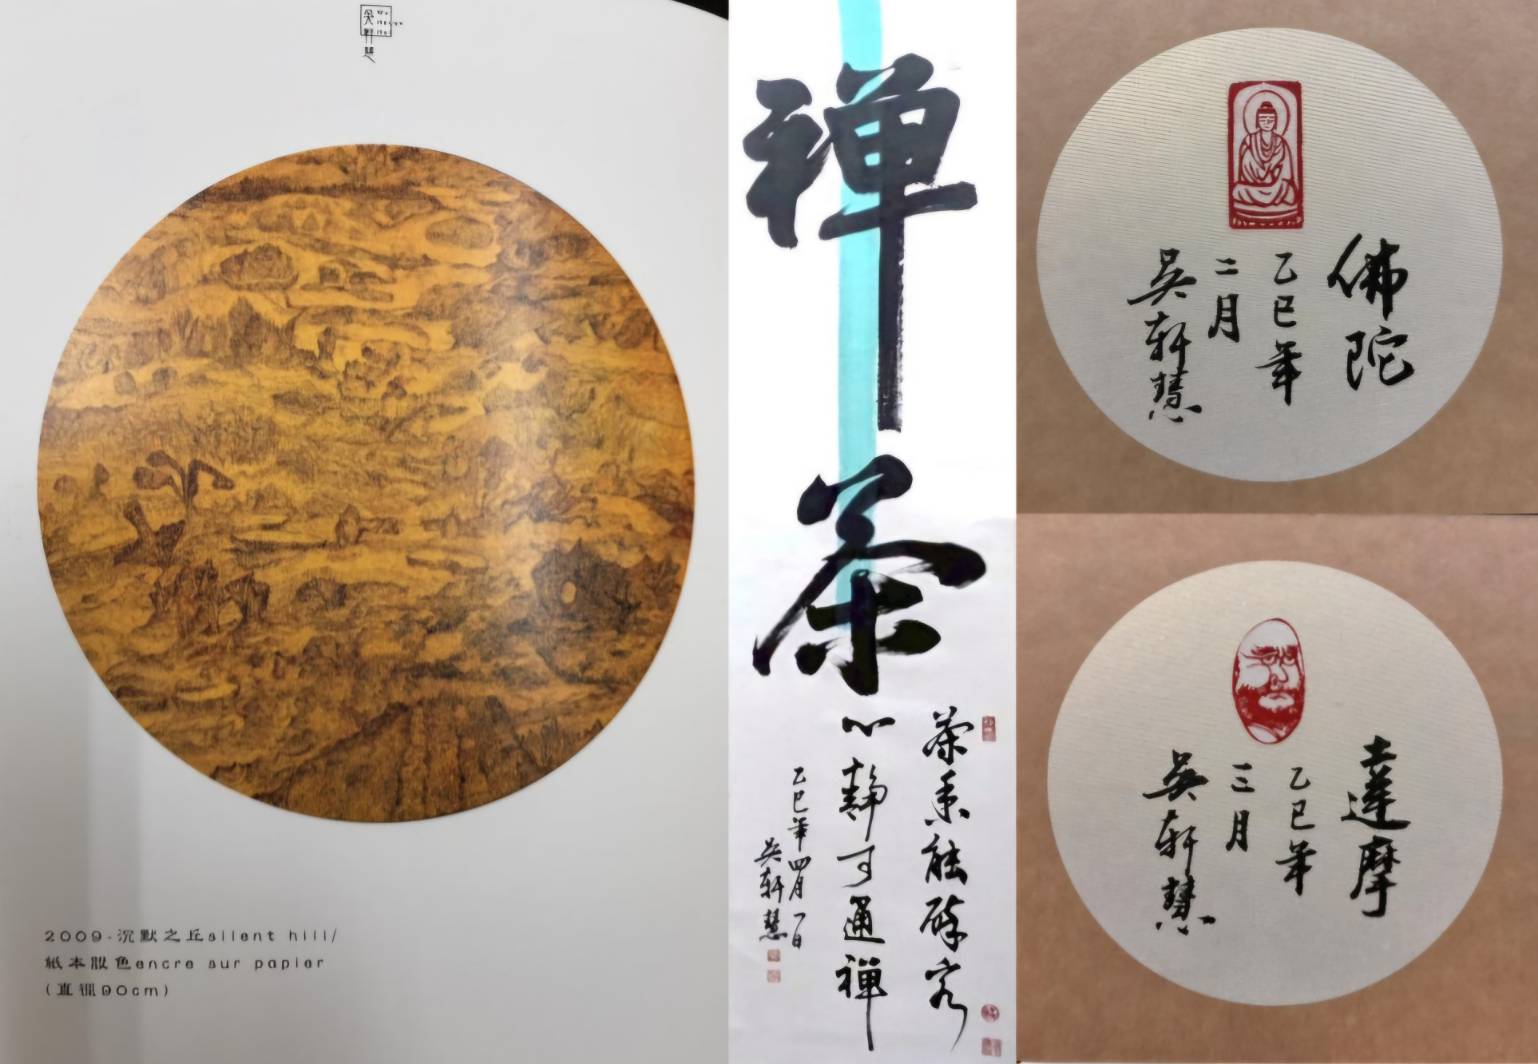 吳軒慧
2009·沉默之丘silent hill/
紙本設色encre sur papier
(直徑90cm)
禅
茶
茶香能醉客
心靜可通禪
乙巳年四月一日
吳軒慧
佛陀
乙巳年
二月
吳軒慧
達摩
乙巳年
三月
吳軒慧